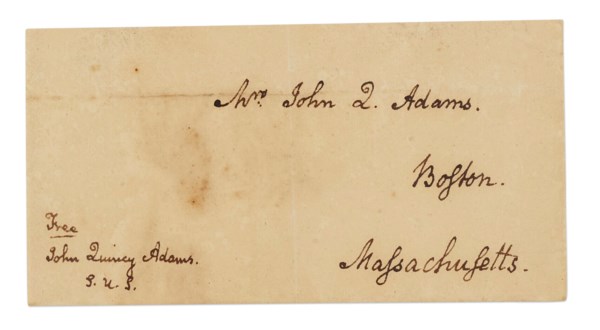 Mrs. John Q. Adams.
Boſton.
Free
John Quincy Adams.
S. U. S.
Maſsachuſetts.